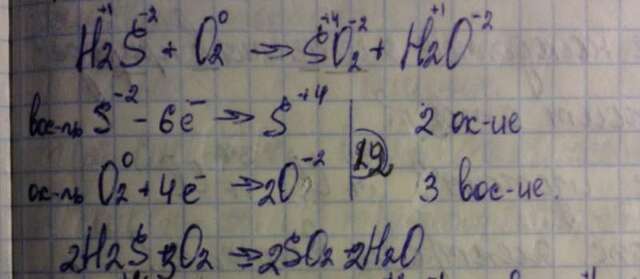 H₂⁺¹S⁻² + O₂⁰ → S⁺⁴O₂⁻² + H₂⁺¹O⁻²
вос-ль S⁻² - 6e⁻ → S⁺⁴ | 12 2 ок-ие
ок-ль O₂⁰ + 4e⁻ → 2O⁻² | 3 вос-ие.
2H₂S + 3O₂ = 2SO₂ + 2H₂O